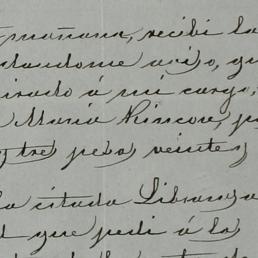 mañana, recibí la
dandome aviso, qu
irado á mi cargo,
Maria Rincon, p
y tres pesos veinte y
la citada Libranza
l que pedí á la